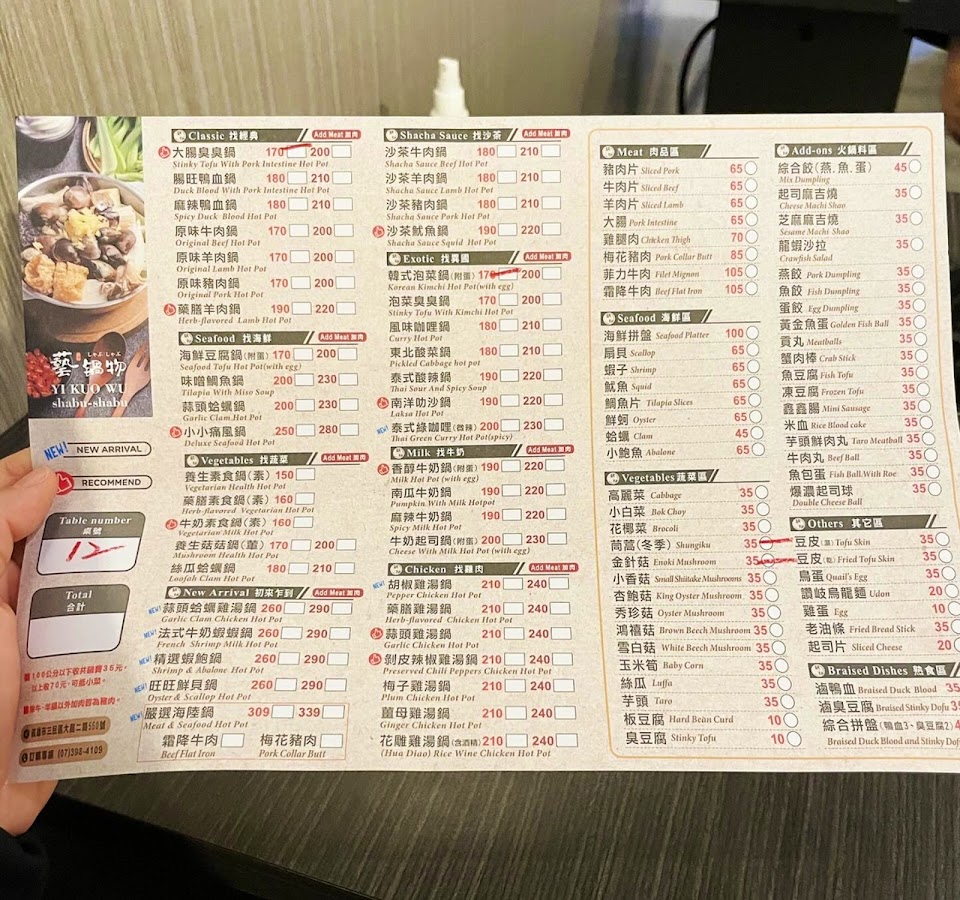 藝鍋物
しゃぶしゃぶ
YI KUO WU
shabu-shabu
NEW! NEW ARRIVAL
RECOMMEND
Table number
桌號
12
Total
合計
(07)398-4109
Classic 找經典 Add Meat 加肉
大腸臭臭鍋 170 200
Stinky Tofu With Pork Intestine Hot Pot
腸旺鴨血鍋 180 210
Duck Blood With Pork Intestine Hot Pot
麻辣鴨血鍋 180 210
Spicy Duck Blood Hot Pot
原味牛肉鍋 170 200
Original Beef Hot Pot
原味羊肉鍋 170 200
Original Lamb Hot Pot
原味豬肉鍋 170 200
Original Pork Hot Pot
藥膳羊肉鍋 190 220
Herb-flavored Lamb Hot Pot
Seafood 找海鮮 Add Meat 加肉
海鮮豆腐鍋(附蛋) 170 200
Seafood Tofu Hot Pot(with egg)
味噌鯛魚鍋 200 230
Tilapia With Miso Soup
蒜頭蛤蠣鍋 200 230
Garlic Clam Hot Pot
小小痛風鍋 250 280
Deluxe Seafood Hot Pot
Vegetables 找蔬菜 Add Meat 加肉
養生素食鍋(素) 150
Vegetarian Health Hot Pot
藥膳素食鍋(素) 160
Herb-flavored Vegetarian Hot Pot
牛奶素食鍋(素) 160
Vegetarian Milk Hot Pot
養生菇菇鍋(葷) 170 200
Mushroom Health Hot Pot
絲瓜蛤蠣鍋 180 210
Loofah Clam Hot Pot
New Arrival 初來乍到 Add Meat 加肉
NEW! 蒜頭蛤蠣雞湯鍋 260 290
Garlic Clam Chicken Hot Pot
NEW! 法式牛奶蝦蝦鍋 260 290
French Shrimp Milk Hot Pot
NEW! 精選蝦鮑鍋 260 290
Shrimp & Abalone Hot Pot
NEW! 旺旺鮮貝鍋 260 290
Oyster & Scallop Hot Pot
NEW! 嚴選海陸鍋 309 339
Meat & Seafood Hot Pot
霜降牛肉 梅花豬肉
Beef Flat Iron Pork Collar Butt
Shacha Sauce 找沙茶 Add Meat 加肉
沙茶牛肉鍋 180 210
Shacha Sauce Beef Hot Pot
沙茶羊肉鍋 180 210
Shacha Sauce Lamb Hot Pot
沙茶豬肉鍋 180 210
Shacha Sauce Pork Hot Pot
沙茶魷魚鍋 190 220
Shacha Sauce Squid Hot Pot
Exotic 找異國 Add Meat 加肉
韓式泡菜鍋(附蛋) 170 200
Korean Kimchi Hot Pot(with egg)
泡菜臭臭鍋 170 200
Stinky Tofu With Kimchi Hot Pot
風味咖哩鍋 180 210
Curry Hot Pot
東北酸菜鍋 180 210
Pickled Cabbage Hot pot
泰式酸辣鍋 190 220
Thai Sour And Spicy Soup
南洋叻沙鍋 190 220
Laksa Hot Pot
NEW! 泰式綠咖哩(微辣) 200 230
Thai Green Curry Hot Pot(spicy)
Milk 找牛奶 Add Meat 加肉
香醇牛奶鍋(附蛋) 190 220
Milk Hot Pot (with egg)
南瓜牛奶鍋 190 220
Pumpkin With Milk Hotpot
麻辣牛奶鍋 190 220
Spicy Milk Hot Pot
牛奶起司鍋(附蛋) 200 230
Cheese With Milk Hot Pot (with egg)
Chicken 找雞肉 Add Meat 加肉
NEW! 胡椒雞湯鍋 210 240
Pepper Chicken Hot Pot
藥膳雞湯鍋 210 240
Herb-flavored Chicken Hot Pot
蒜頭雞湯鍋 210 240
Garlic Chicken Hot Pot
剝皮辣椒雞湯鍋 210 240
Preserved Chili Peppers Chicken Hot Pot
梅子雞湯鍋 210 240
Plum Chicken Hot Pot
薑母雞湯鍋 210 240
Ginger Chicken Hot Pot
花雕雞湯鍋(含酒精) 210 240
(Hua Diao) Rice Wine Chicken Hot Pot
Meat 肉品區
豬肉片 Sliced Pork 65
牛肉片 Sliced Beef 65
羊肉片 Sliced Lamb 65
大腸 Pork Intestine 65
雞腿肉 Chicken Thigh 70
梅花豬肉 Pork Collar Butt 85
菲力牛肉 Filet Mignon 105
霜降牛肉 Beef Flat Iron 105
Seafood 海鮮區
海鮮拼盤 Seafood Platter 100
扇貝 Scallop 65
蝦子 Shrimp 65
魷魚 Squid 65
鯛魚片 Tilapia Slices 65
鮮蚵 Oyster 65
蛤蠣 Clam 45
小鮑魚 Abalone 65
Vegetables 蔬菜區
高麗菜 Cabbage 35
小白菜 Bok Choy 35
花椰菜 Brocoli 35
茼蒿(冬季) Shungiku 35
金針菇 Enoki Mushroom 35
小香菇 Small Shiitake Mushrooms 35
杏鮑菇 King Oyster Mushroom 35
秀珍菇 Oyster Mushroom 35
鴻禧菇 Brown Beech Mushroom 35
雪白菇 White Beech Mushroom 35
玉米筍 Baby Corn 35
絲瓜 Luffa 35
芋頭 Taro 35
板豆腐 Hard Bean Curd 10
臭豆腐 Stinky Tofu 10
Add-ons 火鍋料區
綜合餃(燕.魚.蛋) 45
Mix Dumpling
起司麻吉燒 35
Cheese Machi Shao
芝麻麻吉燒 35
Sesame Machi Shao
龍蝦沙拉 35
Crawfish Salad
燕餃 Pork Dumpling 35
魚餃 Fish Dumpling 35
蛋餃 Egg Dumpling 35
黃金魚蛋 Golden Fish Ball 35
貢丸 Meatballs 35
蟹肉棒 Crab Stick 35
魚豆腐 Fish Tofu 35
凍豆腐 Frozen Tofu 35
鑫鑫腸 Mini Sausage 35
米血 Rice Blood cake 35
芋頭鮮肉丸 Taro Meatball 35
牛肉丸 Beef Ball 35
魚包蛋 Fish Ball With Roe 35
爆濃起司球 35
Double Cheese Ball
Others 其它區
豆皮(濕) Tofu Skin 35
豆皮(乾) Fried Tofu Skin 35
鳥蛋 Quail's Egg 35
讚岐烏龍麵 Udon 20
雞蛋 Egg 10
老油條 Fried Bread Stick 35
起司片 Sliced Cheese 20
Braised Dishes 熟食區
滷鴨血 Braised Duck Blood 35
滷臭豆腐 Braised Stinky Dofu 35
綜合拼盤(鴨血3、臭豆腐2)
Braised Duck Blood and Stinky Dof